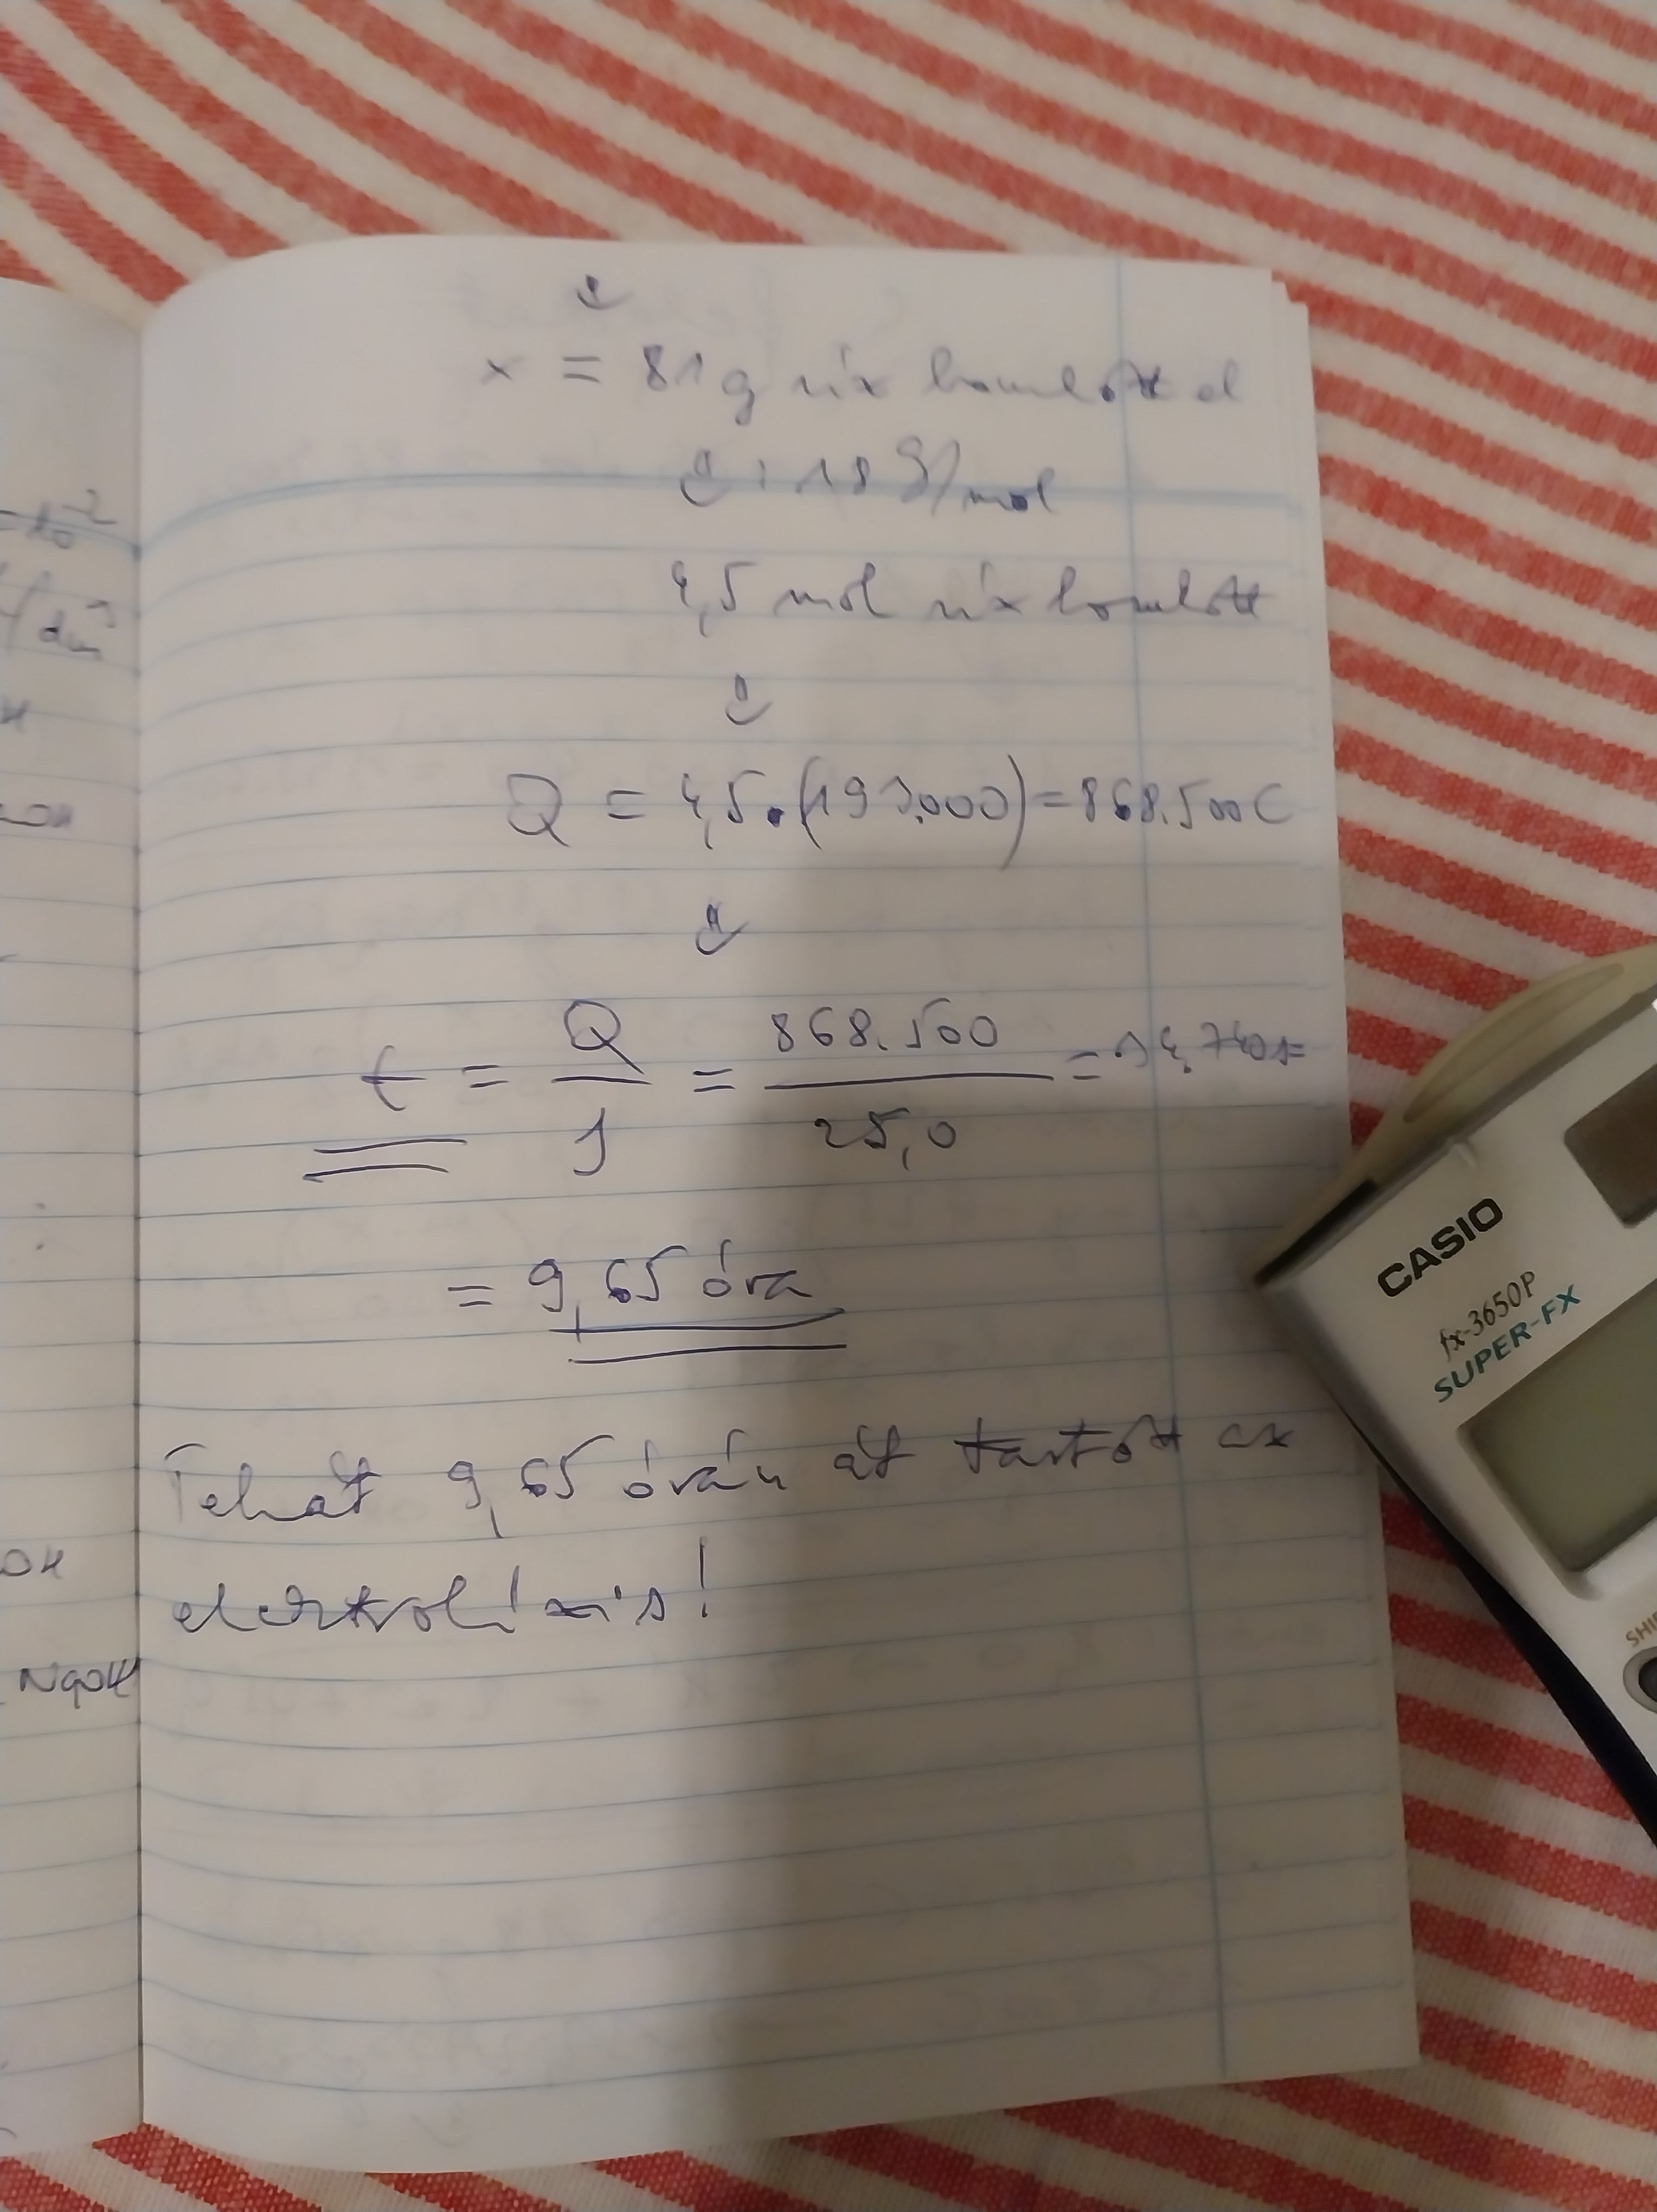 = 10⁻²
/dm³
x = 81 g víz bomlott el
: 18 g/mol
4,5 mol víz bomlott
Q = 4,5·(193.000) = 868.500 C
t = Q/J = 868.500/25,0 = 34.740 s =
= 9,65 óra
Tehát 9,65 órán át tartott az
elektrolízis!
OH
NaOH
CASIO
fx-3650P
SUPER-FX
SHI